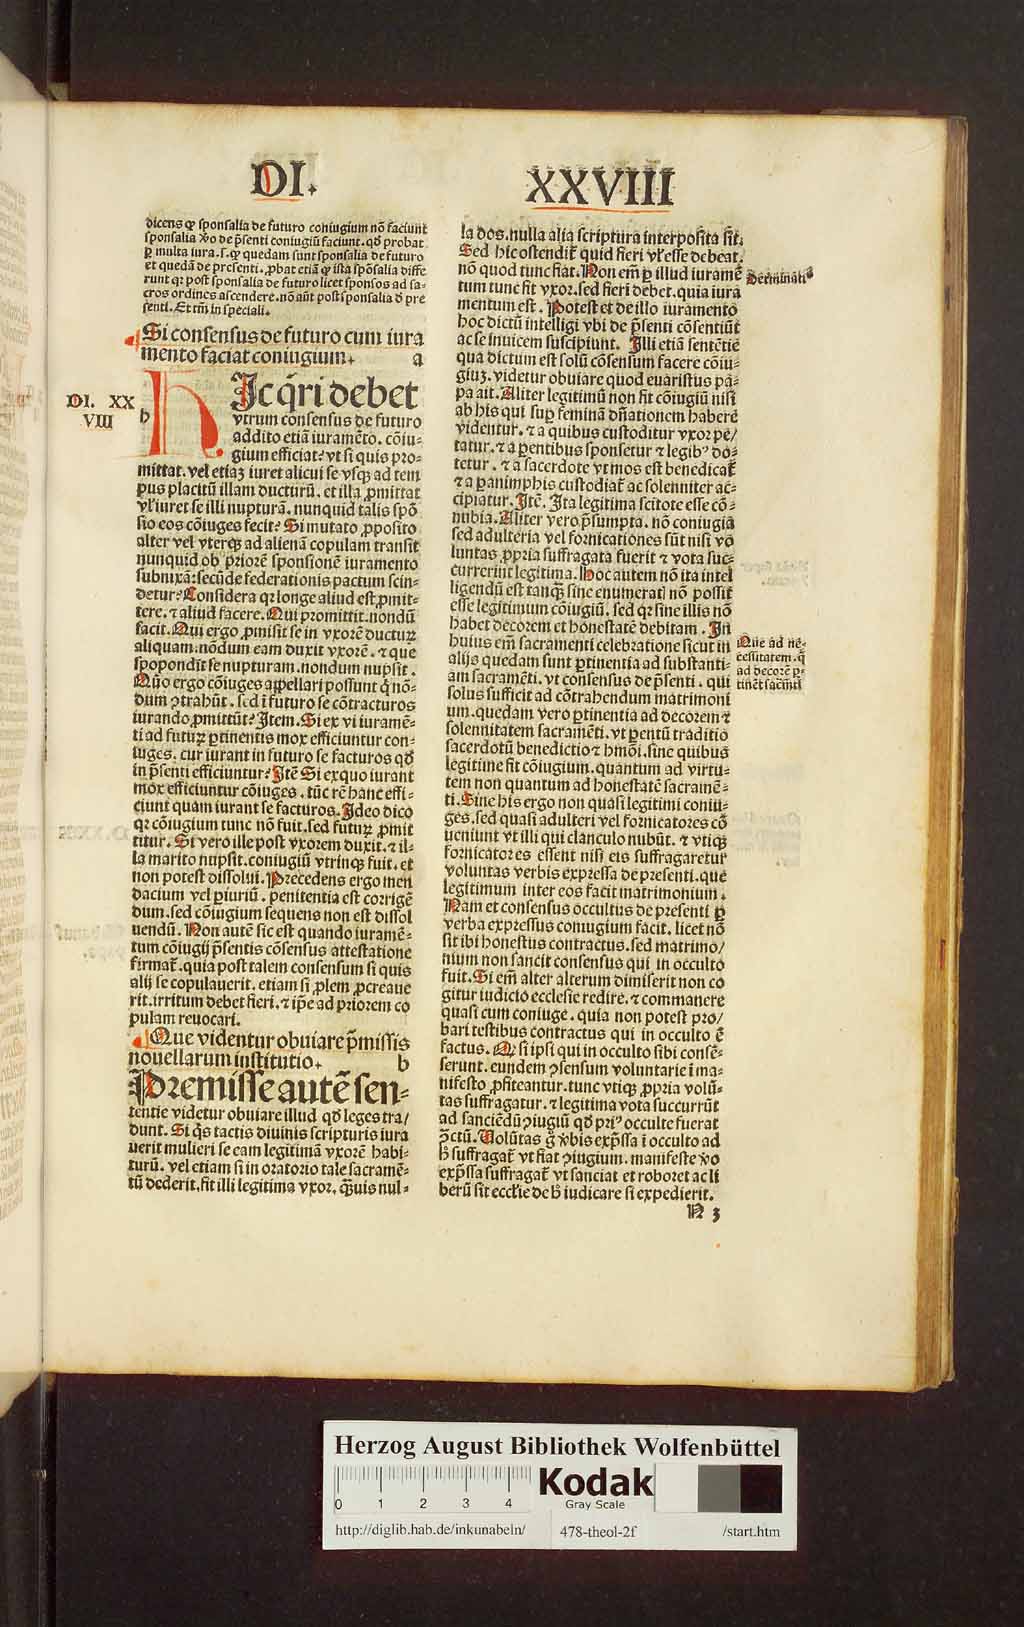 DI.
XXVIII
dicens ꝙ sponsalia de futuro coniugium nō faciunt
sponsalia v̄o de p̄senti coniugiū faciunt. qd̄ probat
ꝑ multa iura. s. ꝙ quedam sunt sponsalia de futuro
et quedā de presenti. ꝓbat etiā ꝙ ista spōsalia diffe
runt qꝛ post sponsalia de futuro licet sponsos ad sa-
cros ordines ascendere. nō aūt post sponsalia d̄ pre
senti. Et tm̄ in speciali.
Si consensus de futuro cum iura
mento faciat coniugium. a
DI. XX
VIII
h
HIc q̄ri debet
vtrum consensus de futuro
addito etiā iuramēto. cōiu-
gium efficiat? vt si quis pro-
mittat. vel etiaʒ iuret alicui se vsqꝫ ad tem
pus placitū illam ducturū. et illa ꝓmittat
vl' iuret se illi nupturā. nunquid talis spō
sio eos cōiuges fecit? Si mutato ꝓposito
alter vel vterqꝫ ad alienā copulam transit
nunquid ob priorē sponsionē iuramento
subnixā: secūde federationis pactum scin-
detur? Considera qꝛ longe aliud est ꝓmit-
tere. ⁊ aliud facere. Qui promittit. nondū
facit. Qui ergo ꝓmisit se in vxorē ducturꝫ
aliquam. nōdum eam duxit vxorē. ⁊ que
spopondit se nupturam. nondum nupsit.
Quō ergo cōiuges appellari possunt q̄ nō-
dum ꝯtrahūt. sed ī futuro se cōtracturos
iurando ꝓmittūt? Item. Si ex vi iuramē-
ti ad futurꝫ ꝑtinentis mox efficiuntur con-
iuges. cur iurant in futuro se facturos qd̄
in p̄senti efficiuntur? Itē Si exquo iurant
mox efficiuntur cōiuges. tūc rē hanc effi-
ciunt quam iurant se facturos. Ideo dico
qꝛ cōiugium tunc nō fuit. sed futurꝫ ꝓmit
titur. Si vero ille post vxorem duxit. ⁊ il-
la marito nupsit. coniugiū vtrinqꝫ fuit. et
non potest dissolui. Precedens ergo men
dacium vel ꝑiuriū. penitentia est corrigē
dum. sed cōiugium sequens non est dissol
uendū. Non autē sic est quando iuramē-
tum cōiugij p̄sentis cōsensus attestatione
firmat̄. quia post talem consensum si quis
alij se copulauerit. etiam si ꝓlem ꝓcreaue
rit. irritum debet fieri. ⁊ ip̄e ad priorem co
pulam reuocari.
Que videntur obuiare p̄missis
nouellarum institutio. b
PRemisse autē sen-
tentie videtur obuiare illud qd̄ leges tra/
dunt. Si q̄s tactis diuinis scripturis iura
uerit mulieri se eam legitimā vxorē habi-
turū. vel etiam si in oratorio tale sacramē-
tū dederit. fit illi legitima vxor. q̄uis nul-
la dos. nulla alia scriptura interposita sit.
Sed hic ostendit̄ quid fieri vl' esse debeat.
nō quod tunc fiat. Non em̄ ꝑ illud iuramē
tum tunc fit vxor. sed fieri debet. quia iura
mentum est. Potest et de illo iuramento
hoc dictū intelligi vbi de p̄senti cōsentiūt
ac se inuicem suscipiunt. Illi etiā sentētie
qua dictum est solū cōsensum facere cōiu-
giuʒ. videtur obuiare quod euaristus pa-
pa ait. Aliter legitimū non fit cōiugiū nisi
ab his qui suꝑ feminā dn̄ationem habere
videntur. ⁊ a quibus custoditur vxor pe/
tatur. ⁊ a parentibus sponsetur ⁊ legibꝰ do-
tetur. ⁊ a sacerdote vt mos est benedicat̄
⁊ a paranimphis custodiat̄ ac solenniter ac-
cipiatur. Itē. Ita legitima scitote esse cō-
nubia. Aliter vero p̄sumpta. nō coniugia
sed adulteria vel fornicationes sūt nisi vo
luntas ꝓpria suffragata fuerit ⁊ vota suc-
currerint legitima. Hoc autem nō ita intel
ligendū est tanqꝫ sine enumerat̄ nō possit
esse legitimum cōiugiū. sed qꝛ sine illis nō
habet decorem et honestatē debitam. In
huius em̄ sacramenti celebratione sicut in
alijs quedam sunt ꝑtinentia ad substanti-
am sacramēti. vt consensus de p̄senti. qui
solus sufficit ad cōtrahendum matrimoni
um. quedam vero ꝑtinentia ad decorem ⁊
solennitatem sacramēti. vt parentū traditio
sacerdotū benedictio ⁊ hm̄oi. sine quibus
legitime fit cōiugium. quantum ad virtu-
tem non quantum ad honestatē sacramē-
ti. Sine his ergo non quasi legitimi coniu-
ges. sed quasi adulteri vel fornicatores cō
ueniunt vt illi qui clanculo nubūt. ⁊ vtiqꝫ
fornicatores essent nisi eis suffragaretur
voluntas verbis expressa de presenti. que
legitimum inter eos facit matrimonium.
Nam et consensus occultus de presenti ꝑ
verba expressus coniugium facit. licet nō
sit ibi honestus contractus. sed matrimo/
nium non sancit consensus qui in occulto
fuit. Si em̄ alter alterum dimiserit non co
gitur iudicio ecclesie redire. ⁊ commanere
quasi cum coniuge. quia non potest pro/
bari testibus contractus qui in occulto ē
factus. Qꝛ si ipsi qui in occulto sibi consē-
serunt. eundem ꝯsensum voluntarie ī ma-
nifesto ꝓfiteantur. tunc vtiqꝫ ꝓpria volū-
tas suffragatur. ⁊ legitima vota succurrūt
ad sanciēdū ꝯiugiū qd̄ priꝰ occulte fuerat
ꝯctū. Volūtas g̊ v̄bis exp̄ssa ī occulto ad
h̄ suffragat̄ vt fiat ꝯiugium. manifeste v̄o
exp̄ssa suffragat̄ vt sanciat et roboret ac li
berū sit eccl'ie de h̄ iudicare si expedierit.
N 3
Que ad ne-
cessitatem. q̄
ad decorē ꝑ-
tinēt sacm̄ti
Herzog August Bibliothek Wolfenbüttel
0 1 2 3 4
Kodak
Gray Scale
http://diglib.hab.de/inkunabeln/ 478-theol-2f /start.htm